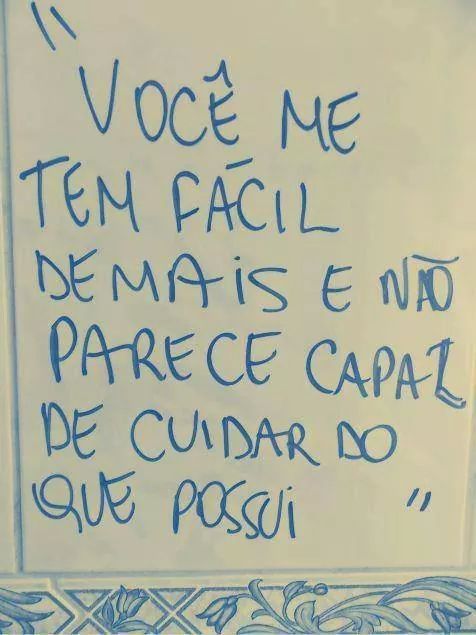 "VOCÊ ME
TEM FÁCIL
DEMAIS E NÃO
PARECE CAPAZ
DE CUIDAR DO
QUE POSSUI"